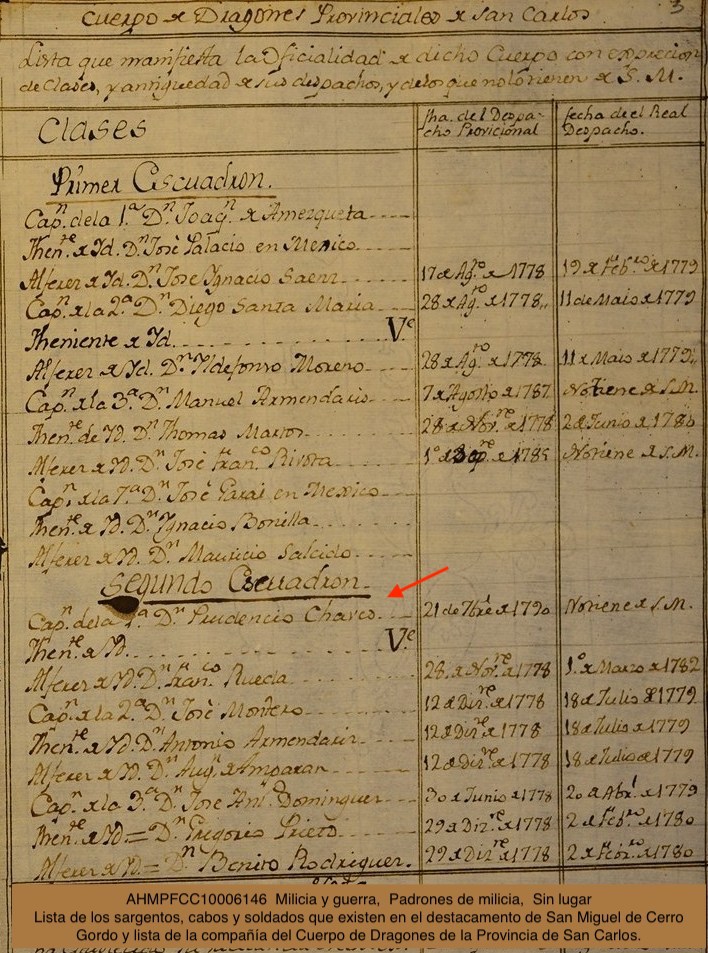 3
Cuerpo de Dragones Provinciales de San Carlos
Lista que manifiesta la Oficialidad de dicho Cuerpo con expreción
de Clases, y antiguedad de sus despachos, y de los que no lo tienen de S. M.
Clases
fha. del Despa-
cho Provicional
fecha de el Real
Despacho.
Primer Escuadron.
Capn. de la 1.a Dn. Joaqn. de Amezqueta
Thente. de Yd. Dn. José Palacio en Mexico
Alferez de Yd. Dn. José Ygnacio Saenz 17 de Agto. de 1778 19 de Febro. de 1779
Capn. de la 2.a Dn. Diego Santa Maria 28 de Agto. de 1778,, 11 de Maio de 1779
Theniente de Yd. Ve.
Alferez de Yd. Dn. Yldefonso Moreno 28 de Agto. de 1778 11 de Maio de 1779,,
Capn. de la 3.a Dn. Manuel Armendaris 7 de Agosto de 1787 No tiene de S.M.
Thente. de Yd. Dn. Thomas Martos 28 de Novre. de 1778 2 de Junio de 1780
Alferez de Yd. Dn. José Franco. 1.o de Sepre. de No tiene de S.M.
Capn. de la Dn. José en Mexico
Thente. de Yd. Dn. Ygnacio Bonilla
Alferez de Yd. Dn. Mauricio Salcido
Segundo Escuadron.
Capn. de la 1.a Dn. Prudencio 21 de 7bre. de 1790 No tiene de S.M.
Thente. de Yd. Ve.
Alferez de Yd. Dn. Franco. Rueda 28 de Novre. de 1778 1.o de Marzo de 1782
Capn. de la 2.a Dn. José Montero 12 de Dizre. de 1778 18 de Julio de 1779
Thente. de Yd. Dn. Antonio Armendariz 12 de Dizre. de 1778 18 de Julio de 1779
Alferez de Yd. Dn. Augn. de Amparan 12 de Dizre. de 1778 18 de Julio de 1779
Capn. de la 3.a Dn. José Ant. Dominguez 30 de Junio de 1778 20 de Abrl. de 1779
Thente. de Yd = Dn. Gregorio Prieto 29 de Dizre. de 1778 2 de Febro. de 1780
Alferez de Yd = Dn. Benito Rodriguez. 29 de Dizre. de 1778 2 de Febro. de 1780
AHMPFCC10006146 Milicia y guerra, Padrones de milicia, Sin lugar
Lista de los sargentos, cabos y soldados que existen en el destacamento de San Miguel de Cerro
Gordo y lista de la compañía del Cuerpo de Dragones de la Provincia de San Carlos.